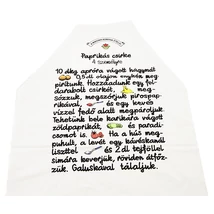 Paprikás csirke
4 személyre
10 dkg apróra vágott hagymát
0,5 dl olajon enyhén meg-
pirítunk. Hozzáadunk egy fel-
darabolt csirkét, meg-
sózzuk, megszórjuk pirospap-
rikával, és egy kevés
vízzel fedő alatt megpároljuk.
Tehetünk bele karikára vágott
zöldpaprikát, és paradi-
csomot is. Ha a hús meg-
puhult, a levét egy kávéskanál
liszttel és 2 dl tejföllel
simára keverjük, röviden átfőz-
zük. Galuskával tálaljuk.